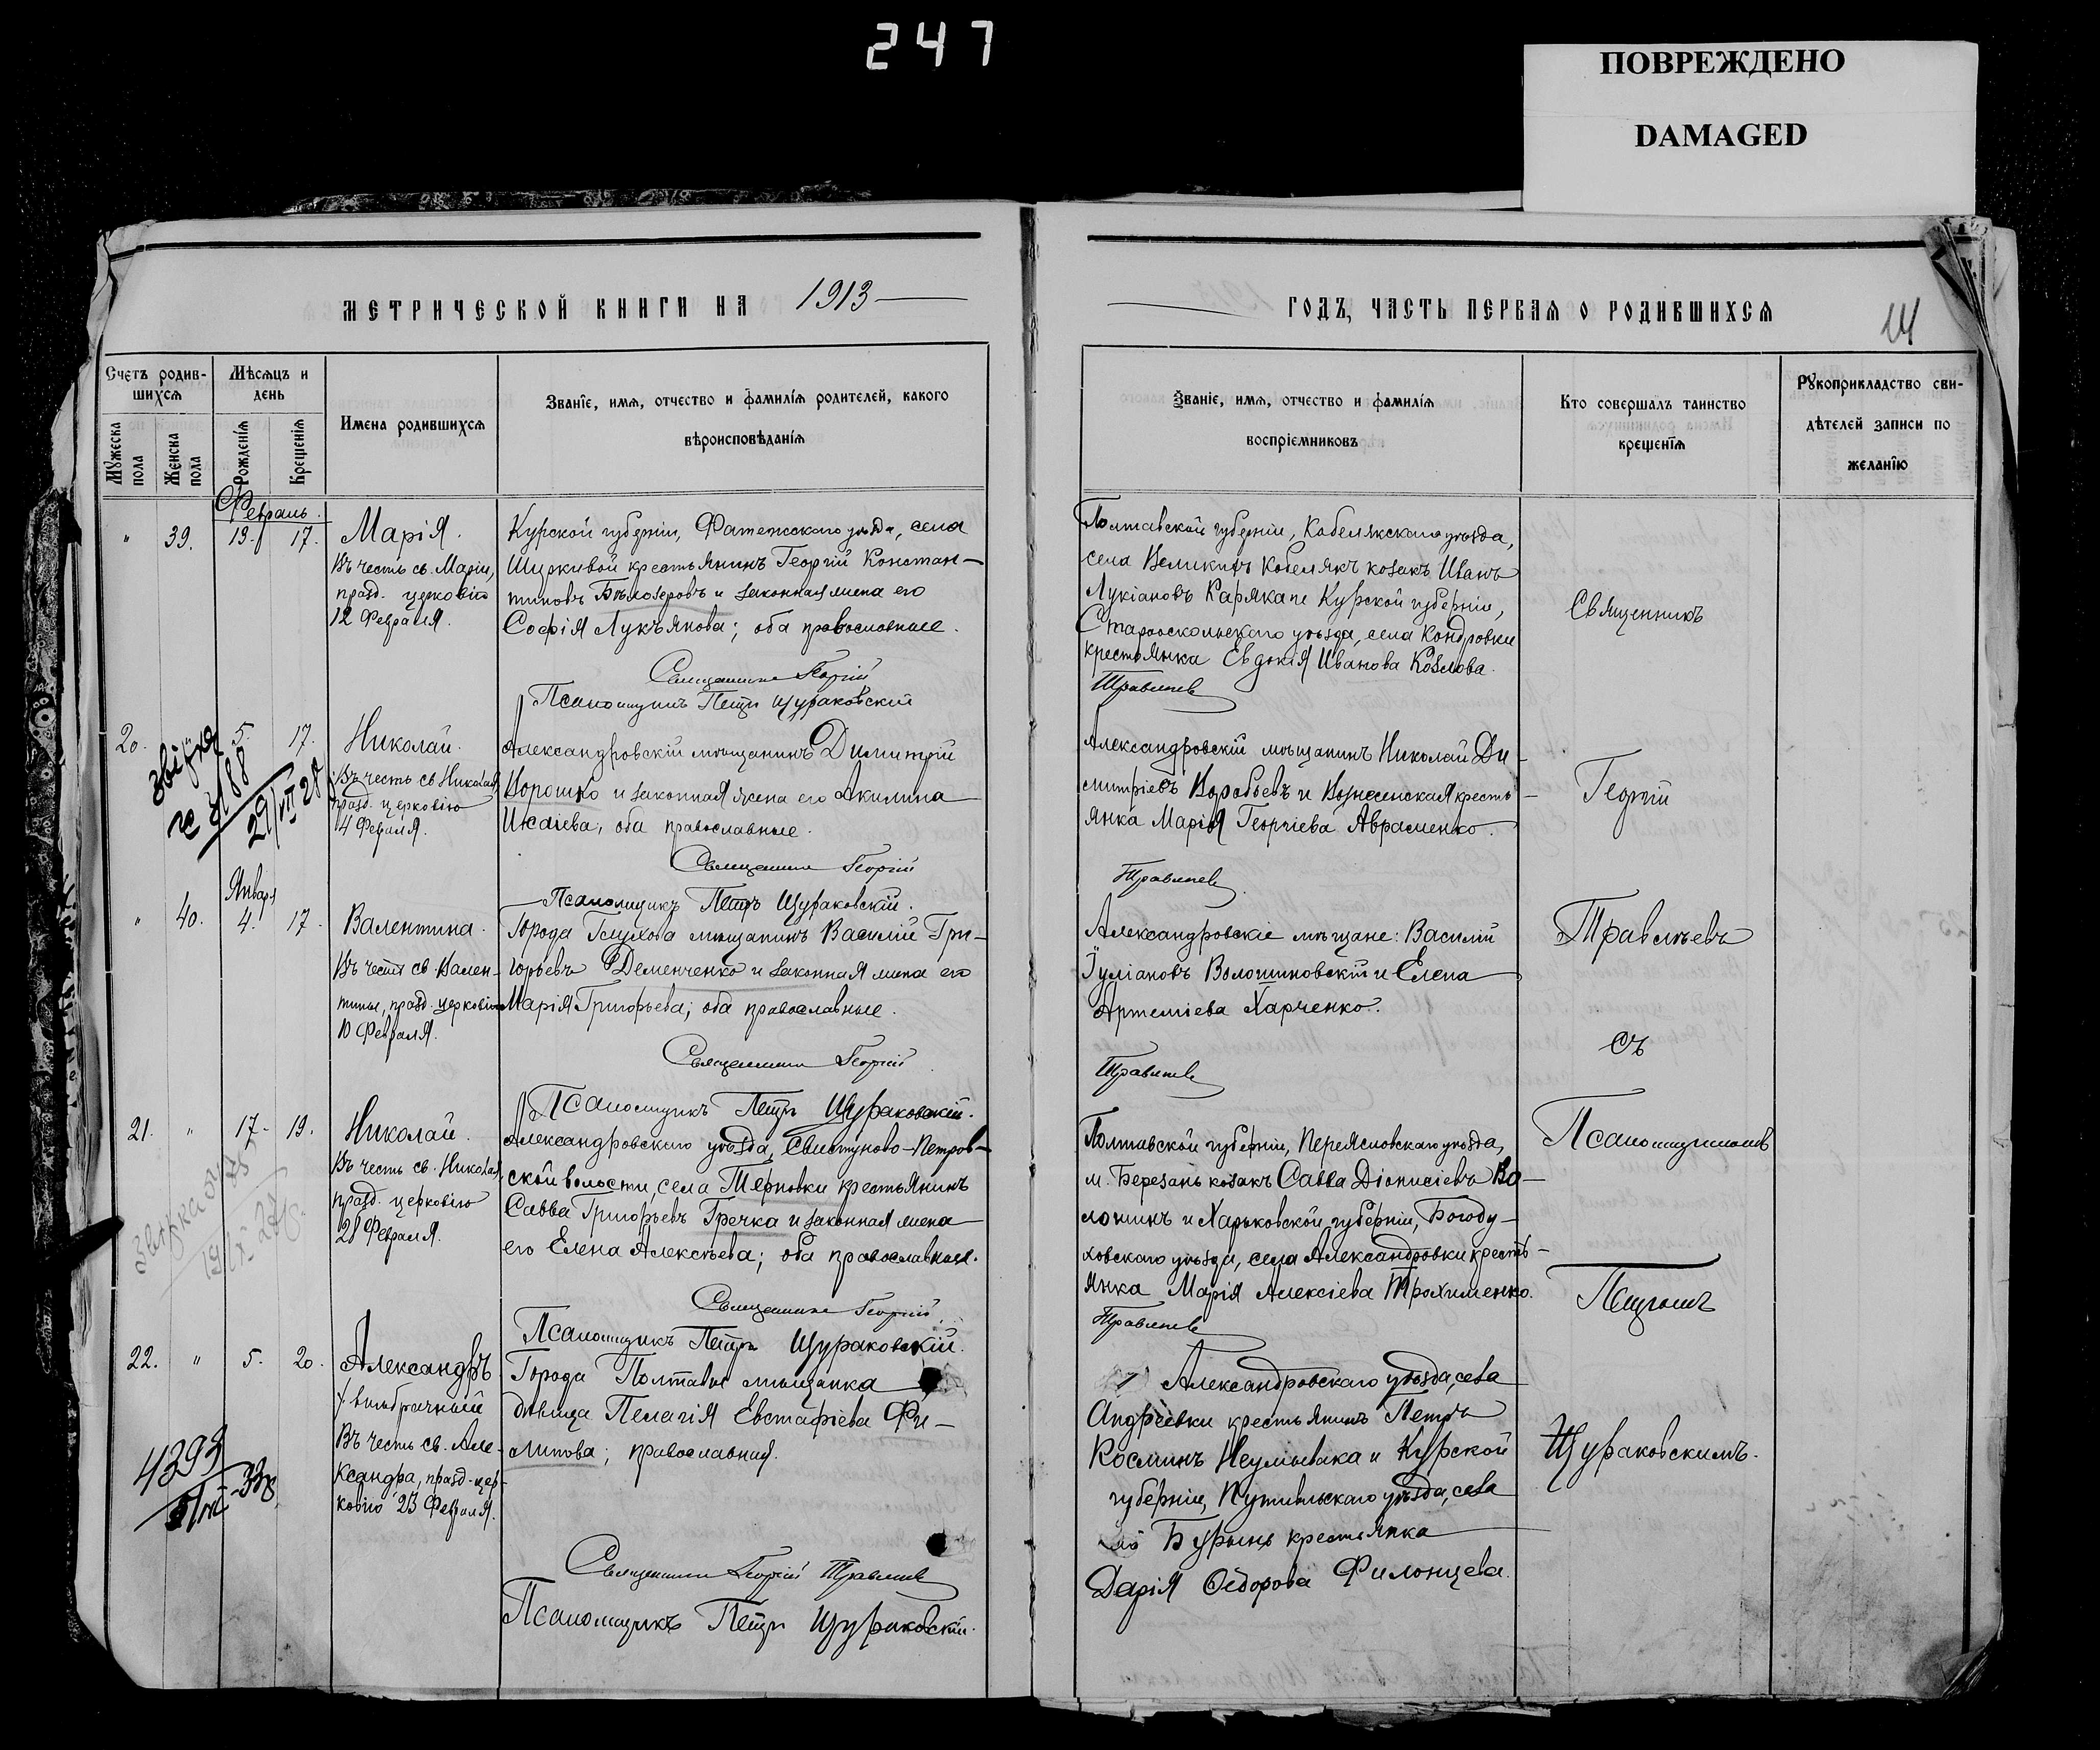 247
ПОВРЕЖДЕНО
DAMAGED
МЕТРИЧЕСКОЙ КНИГИ НА 1913
ГОДЪ, ЧАСТЬ ПЕРВАЯ О РОДИВШИХСЯ
Счетъ родив-
шихся
Мужеска
пола
Женска
пола
Мѣсяцъ и
день
Рожденія
Крещенія
Имена родившихся
Званіе, имя, отчество и фамилія родителей, какого
вѣроисповѣданія
Званіе, имя, отчество и фамилія
воспріемниковъ
Кто совершалъ таинство
крещенія
Рукоприкладство сви-
дѣтелей записи по
желанію
Февраль.
" 39. 13. 17.
Марія.
Въ честь св. Маріи,
празд. церковію
12 Февраля.
Курской губерніи, Фатежскаго уѣзда, села
крестьянинъ Георгій Констан-
тиновъ Бѣлозеровъ и законная жена его
Софія Лукъянова; оба православные.
Священникъ Георгій
Псаломщикъ Петръ Щураковскій
Полтавской губерніи, Кобелякскаго уѣзда,
села Великихъ Кобелякъ козакъ Иванъ
Лукіановъ Каряка и Курской губерніи,
Старооскольскаго уѣзда, села Кондровки
крестьянка Евдокія Иванова Козлова.
Травлѣевъ
20. " 5. 17.
звірка
4188
29/VII 28
Николай.
Въ честь св. Николая,
празд. церковію
4 Февраля.
Александровскій мѣщанинъ Димитрій
Ворошко и законная жена его Акилина
Исаіева; оба православные.
Священникъ Георгій
Псаломщикъ Петръ Щураковскій.
Александровскій мѣщанинъ Николай Ди-
митріевъ Воробьевъ и Вознесенская кресть-
янка Марія Георгіева Авраменко.
Травлѣевъ
Январь
" 40. 4. 17.
Валентина.
Въ честь св. Вален-
тины, празд. церковію
10 Февраля.
Города Глухова мѣщанинъ Василій Гри-
горьевъ Деменченко и законная жена его
Марія Григорьева; оба православные.
Священникъ Георгій
Псаломщикъ Петръ Щураковскій.
Александровскіе мѣщане: Василій
Іуліановъ Волошиновскій и Елена
Артеміева Харченко.
Травлѣевъ
21. " 17. 19.
Николай.
Въ честь св. Николая,
празд. церковію
28 Февраля.
Александровскаго уѣзда, Свистуново-Петров-
ской волости, села Терновки крестьянинъ
Савва Григорьевъ Гречка и законная жена
его Елена Алексѣева; оба православные.
Священникъ Георгій
Псаломщикъ Петръ Щураковскій.
Полтавской губерніи, Переясловскаго уѣзда,
м. Березань козакъ Савва Діонисіевъ Во-
локинъ и Харьковской губерніи, Богоду-
ховскаго уѣзда, села Александровки кресть-
янка Марія Алексіева Трохименко.
Травлѣевъ
22. " 5. 20.
4393
Александръ
/внѣбрачный
Въ честь св. Але-
ксандра, празд. цер-
ковію 23 Февраля.
Города Полтавы мѣщанка
дѣвица Пелагія Евстафіева Фи-
липова; православная.
Священникъ Георгій Травлѣевъ
Псаломщикъ Петръ Щураковскій.
Александровскаго уѣзда, села
Андреевки крестьянинъ Петръ
Косминъ Неумывака и Курской
губерніи, Путивльскаго уѣзда, села
Бурынь крестьянка
Дарія Ѳедорова Филонцева.
Священникъ
Георгій
Травлѣевъ
съ
Псаломщикомъ
Петромъ
Щураковскимъ.